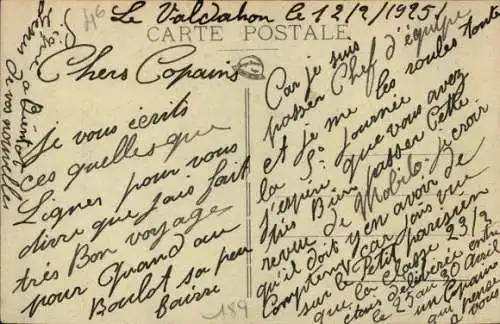 46
Le Valdahon le 12/2/1925
CARTE POSTALE
Chers Copains
Je vous écris
ces quelles que
Lignes pour vous
dire que jais fait
très Bon voyage
pour Quand au
Boulot sa peu
189
Car je suis
passer Chef d'équipe
et je me les roules toute
la Journée
j'espère que vous avez
Bien passer Cette
revue de Mobilo. je croir
qu'il doit y en avoir de
Comptent car jais vue
sur le Petit parisien
que la Classe 23/2
étais Libérée entre
le 25 au 30 Avril
un Copain
qui pense
a vous
Signe
a Bientot
de vos nouvelles